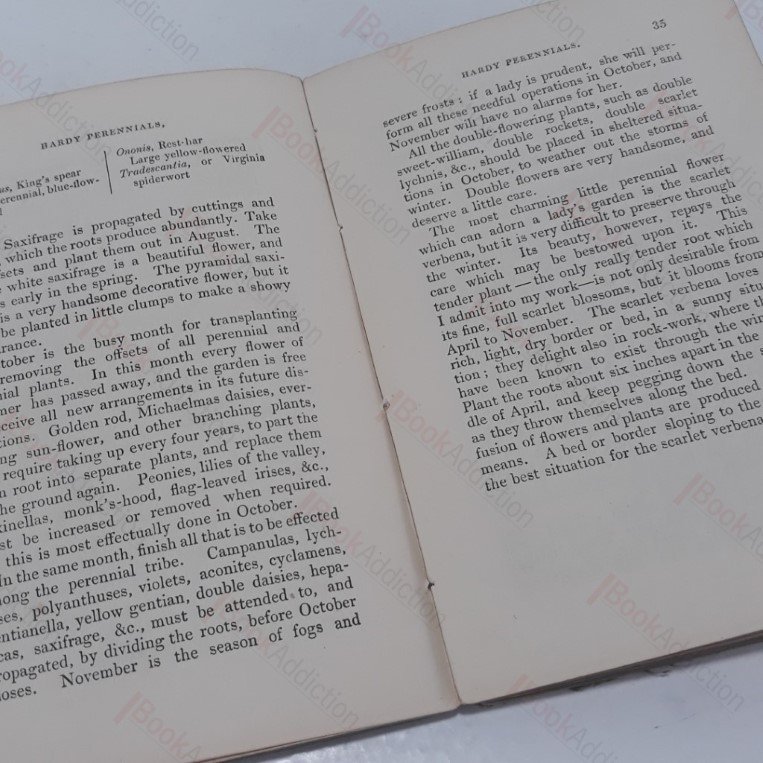 HARDY PERENNIALS,
King's spear
blue-flow-
Ononis, Rest-har
Large yellow-flowered
Tradescantia, or Virginia
spiderwort
Saxifrage is propagated by cuttings and
which the roots produce abundantly. Take
and plant them out in August. The
white saxifrage is a beautiful flower, and
early in the spring. The pyramidal saxi-
is a very handsome decorative flower, but it
be planted in little clumps to make a showy
is the busy month for transplanting
removing the offsets of all perennial and
plants. In this month every flower of
has passed away, and the garden is free
all new arrangements in its future dis-
Golden rod, Michaelmas daisies, ever-
sun-flower, and other branching plants,
require taking up every four years, to part the
root into separate plants, and replace them
the ground again. Peonies, lilies of the valley,
monk's-hood, flag-leaved irises, &c.,
be increased or removed when required.
this is most effectually done in October.
In the same month, finish all that is to be effected
the perennial tribe. Campanulas, lych-
polyanthuses, violets, aconites, cyclamens,
yellow gentian, double daisies, hepa-
saxifrage, &c., must be attended to, and
by dividing the roots, before October
November is the season of fogs and
HARDY PERENNIALS. 35
severe frosts; if a lady is prudent, she will per-
form all these needful operations in October, and
November will have no alarms for her.
All the double-flowering plants, such as double
sweet-william, double rockets, double scarlet
lychnis, &c., should be placed in sheltered situa-
tions in October, to weather out the storms of
winter. Double flowers are very handsome, and
deserve a little care.
The most charming little perennial flower
which can adorn a lady's garden is the scarlet
verbena, but it is very difficult to preserve through
the winter. Its beauty, however, repays the
care which may be bestowed upon it. This
tender plant—the only really tender root which
I admit into my work—is not only desirable from
its fine, full scarlet blossoms, but it blooms from
April to November. The scarlet verbena loves
rich, light, dry border or bed, in a sunny situ
tion; they delight also in rock-work, where
have been known to exist through the
Plant the roots about six inches apart in the
dle of April, and keep pegging down the
as they throw themselves along the bed.
fusion of flowers and plants are produced
means. A bed or border sloping to the
the best situation for the scarlet verbena
BookAddiction